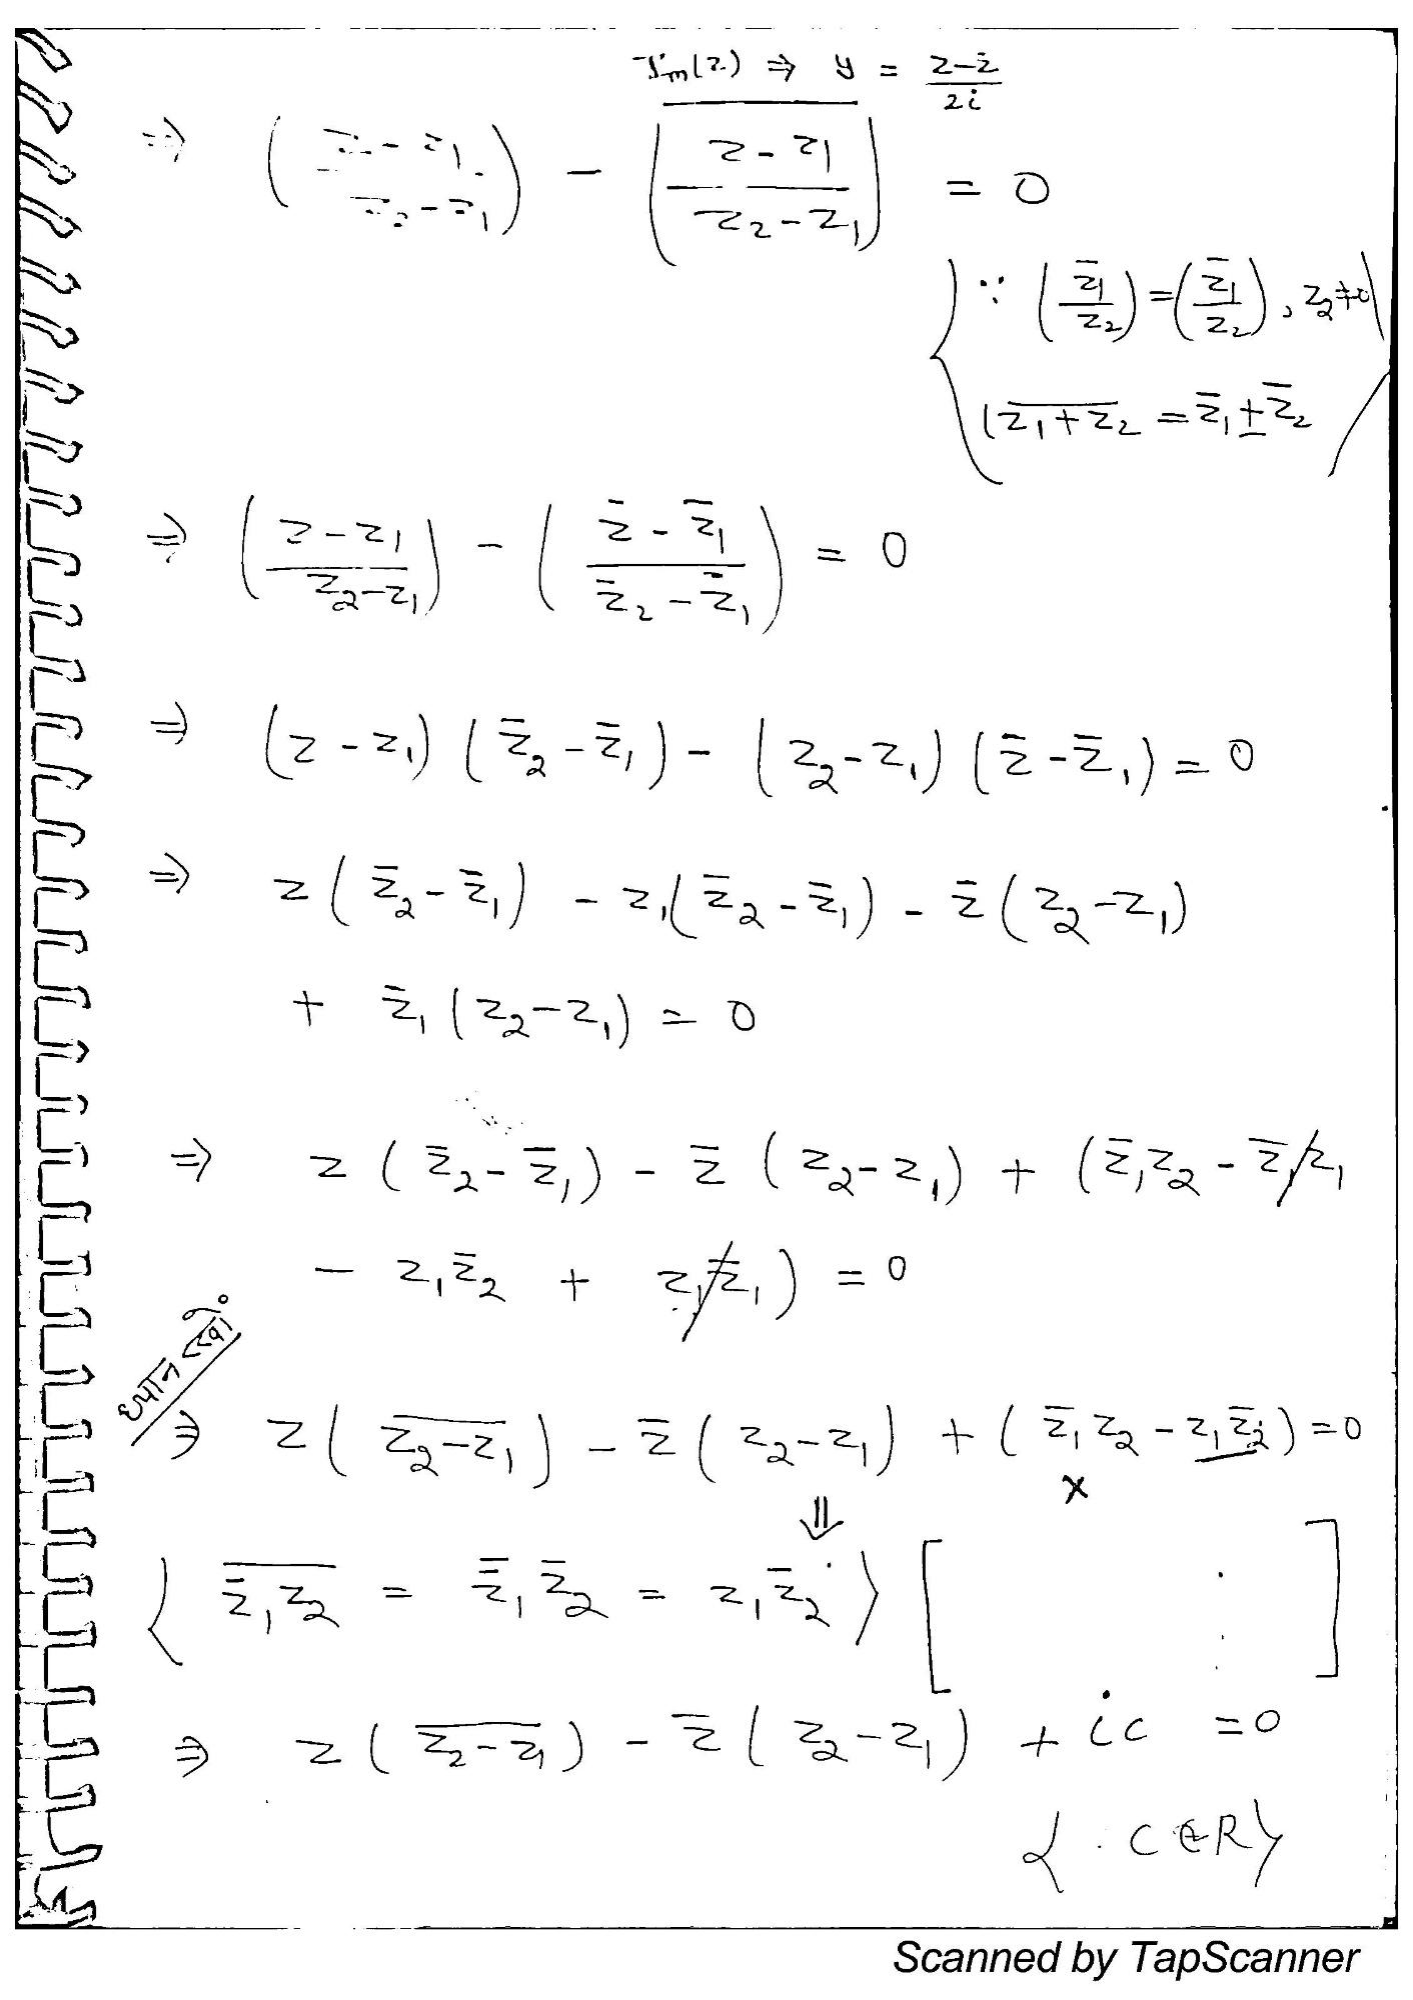 Im(z) ⇒ y = (z - z̄)/2i
⇒ ((z - z₁)/(z₂ - z₁)) - \overline{((z - z₁)/(z₂ - z₁))} = 0
{ ∵ (z̄₁/z₂) = (z̄₁/z₂), z₂ ≠ 0
(\overline{z₁ + z₂} = z̄₁ ± z̄₂
⇒ ((z - z₁)/(z₂ - z₁)) - ((z̄ - z̄₁)/(z̄₂ - z̄₁)) = 0
⇒ (z - z₁) (z̄₂ - z̄₁) - (z₂ - z₁) (z̄ - z̄₁) = 0
⇒ z(z̄₂ - z̄₁) - z₁(z̄₂ - z̄₁) - z̄(z₂ - z₁)
+ z̄₁(z₂ - z₁) = 0
⇒ z(z̄₂ - z̄₁) - z̄(z₂ - z₁) + (z̄₁z₂ - z̄₁z₁
- z₁z̄₂ + z₁z̄₁) = 0
ध्यान रखें
⇒ z(\overline{z₂ - z₁}) - z̄(z₂ - z₁) + (z̄₁z₂ - z₁z̄₂) = 0
x
⇓
{ \overline{z̄₁z₂} = z̿₁z̄₂ = z₁z̄₂ } [ ]
⇒ z(\overline{z₂ - z₁}) - z̄(z₂ - z₁) + ic = 0
{ c ∈ R }
Scanned by TapScanner